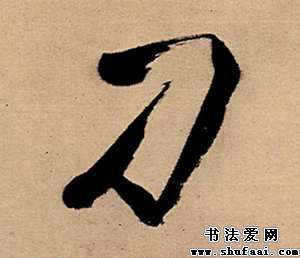 刀
书法爱网
www.shufaai.com